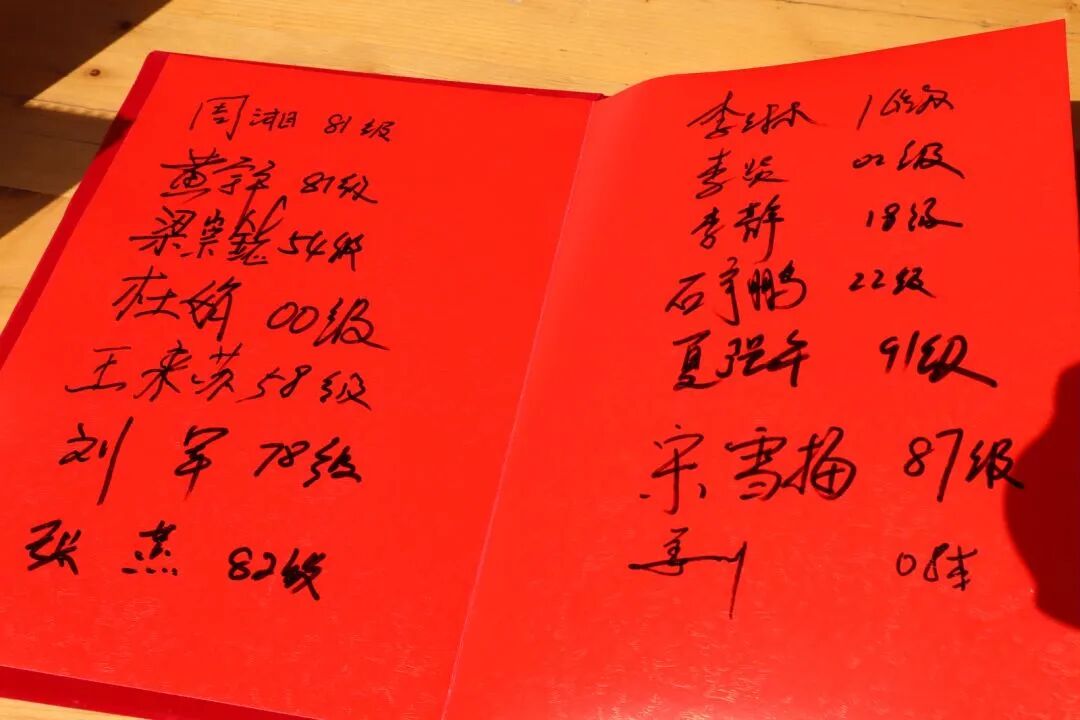 周湘 81级
黄宇 81级
梁崇 54级
杜娟 00级
王来苏 58级
刘军 78级
张燕 82级
李 16级
李炎 02级
李静 18级
石宇鹏 22级
夏强午 91级
宋雪梅 87级
08本